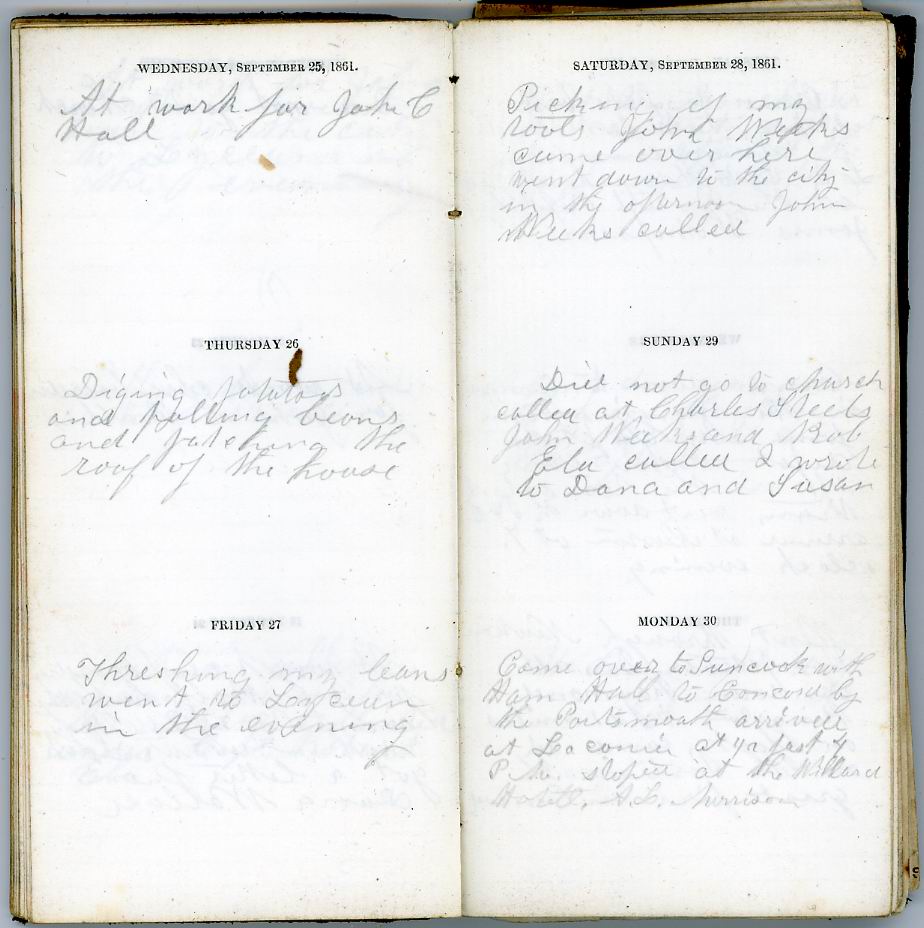 WEDNESDAY, SEPTEMBER 25, 1861.
At work for John C
Hall
THURSDAY 26
Diging potatoes
and pulling beans
and patching the
roof of the house
FRIDAY 27
Threshing my beans
went to Lyceum
in the evening
SATURDAY, SEPTEMBER 28, 1861.
Picking up my
tools John Weeks
came over here
went down to the city
in the afternoon John
Weeks called
SUNDAY 29
Did not go to church
called at Charles Steels
John Weeks and Rob
Ela called I wrote
to Dana and Susan
MONDAY 30
Come over to Suncook with
Ham Hall to Concord by
the Portsmouth arrived
at Laconia at ½ past 7
P.M. stoped at the Willard
Hotell,